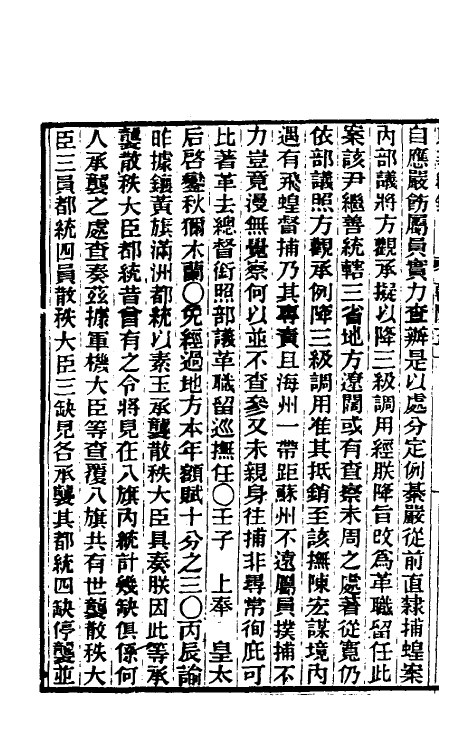 自應嚴飭屬員實力查辦是以處分定例綦嚴從前直隸捕蝗案
內部議將方觀承擬以降三級調用經朕降旨改為革職留任此
案該尹繼善統轄三省地方遼闊或有查察未周之處著從寬仍
依部議照方觀承例降三級調用准其抵銷至該撫陳宏謀境內
遇有飛蝗督捕乃其專責且海州一帶距蘇州不遠屬員撲捕不
力豈竟漫無覺察何以並不查參又未親身往捕非尋常徇庇可
比著革去總督銜照部議革職留巡撫任○壬子　上奉　皇太
后啓鑾秋獮木蘭○免經過地方本年額賦十分之三○丙辰諭
昨據鑲黃旗滿洲都統以素玉承襲散秩大臣具奏朕因此等承
襲散秩大臣都統昔曾有之令將見在八旗內統計幾缺俱係何
人承襲之處查奏茲據軍機大臣等查覆八旗共有世襲散秩大
臣三員都統四員散秩大臣三缺見各承襲其都統四缺停襲並